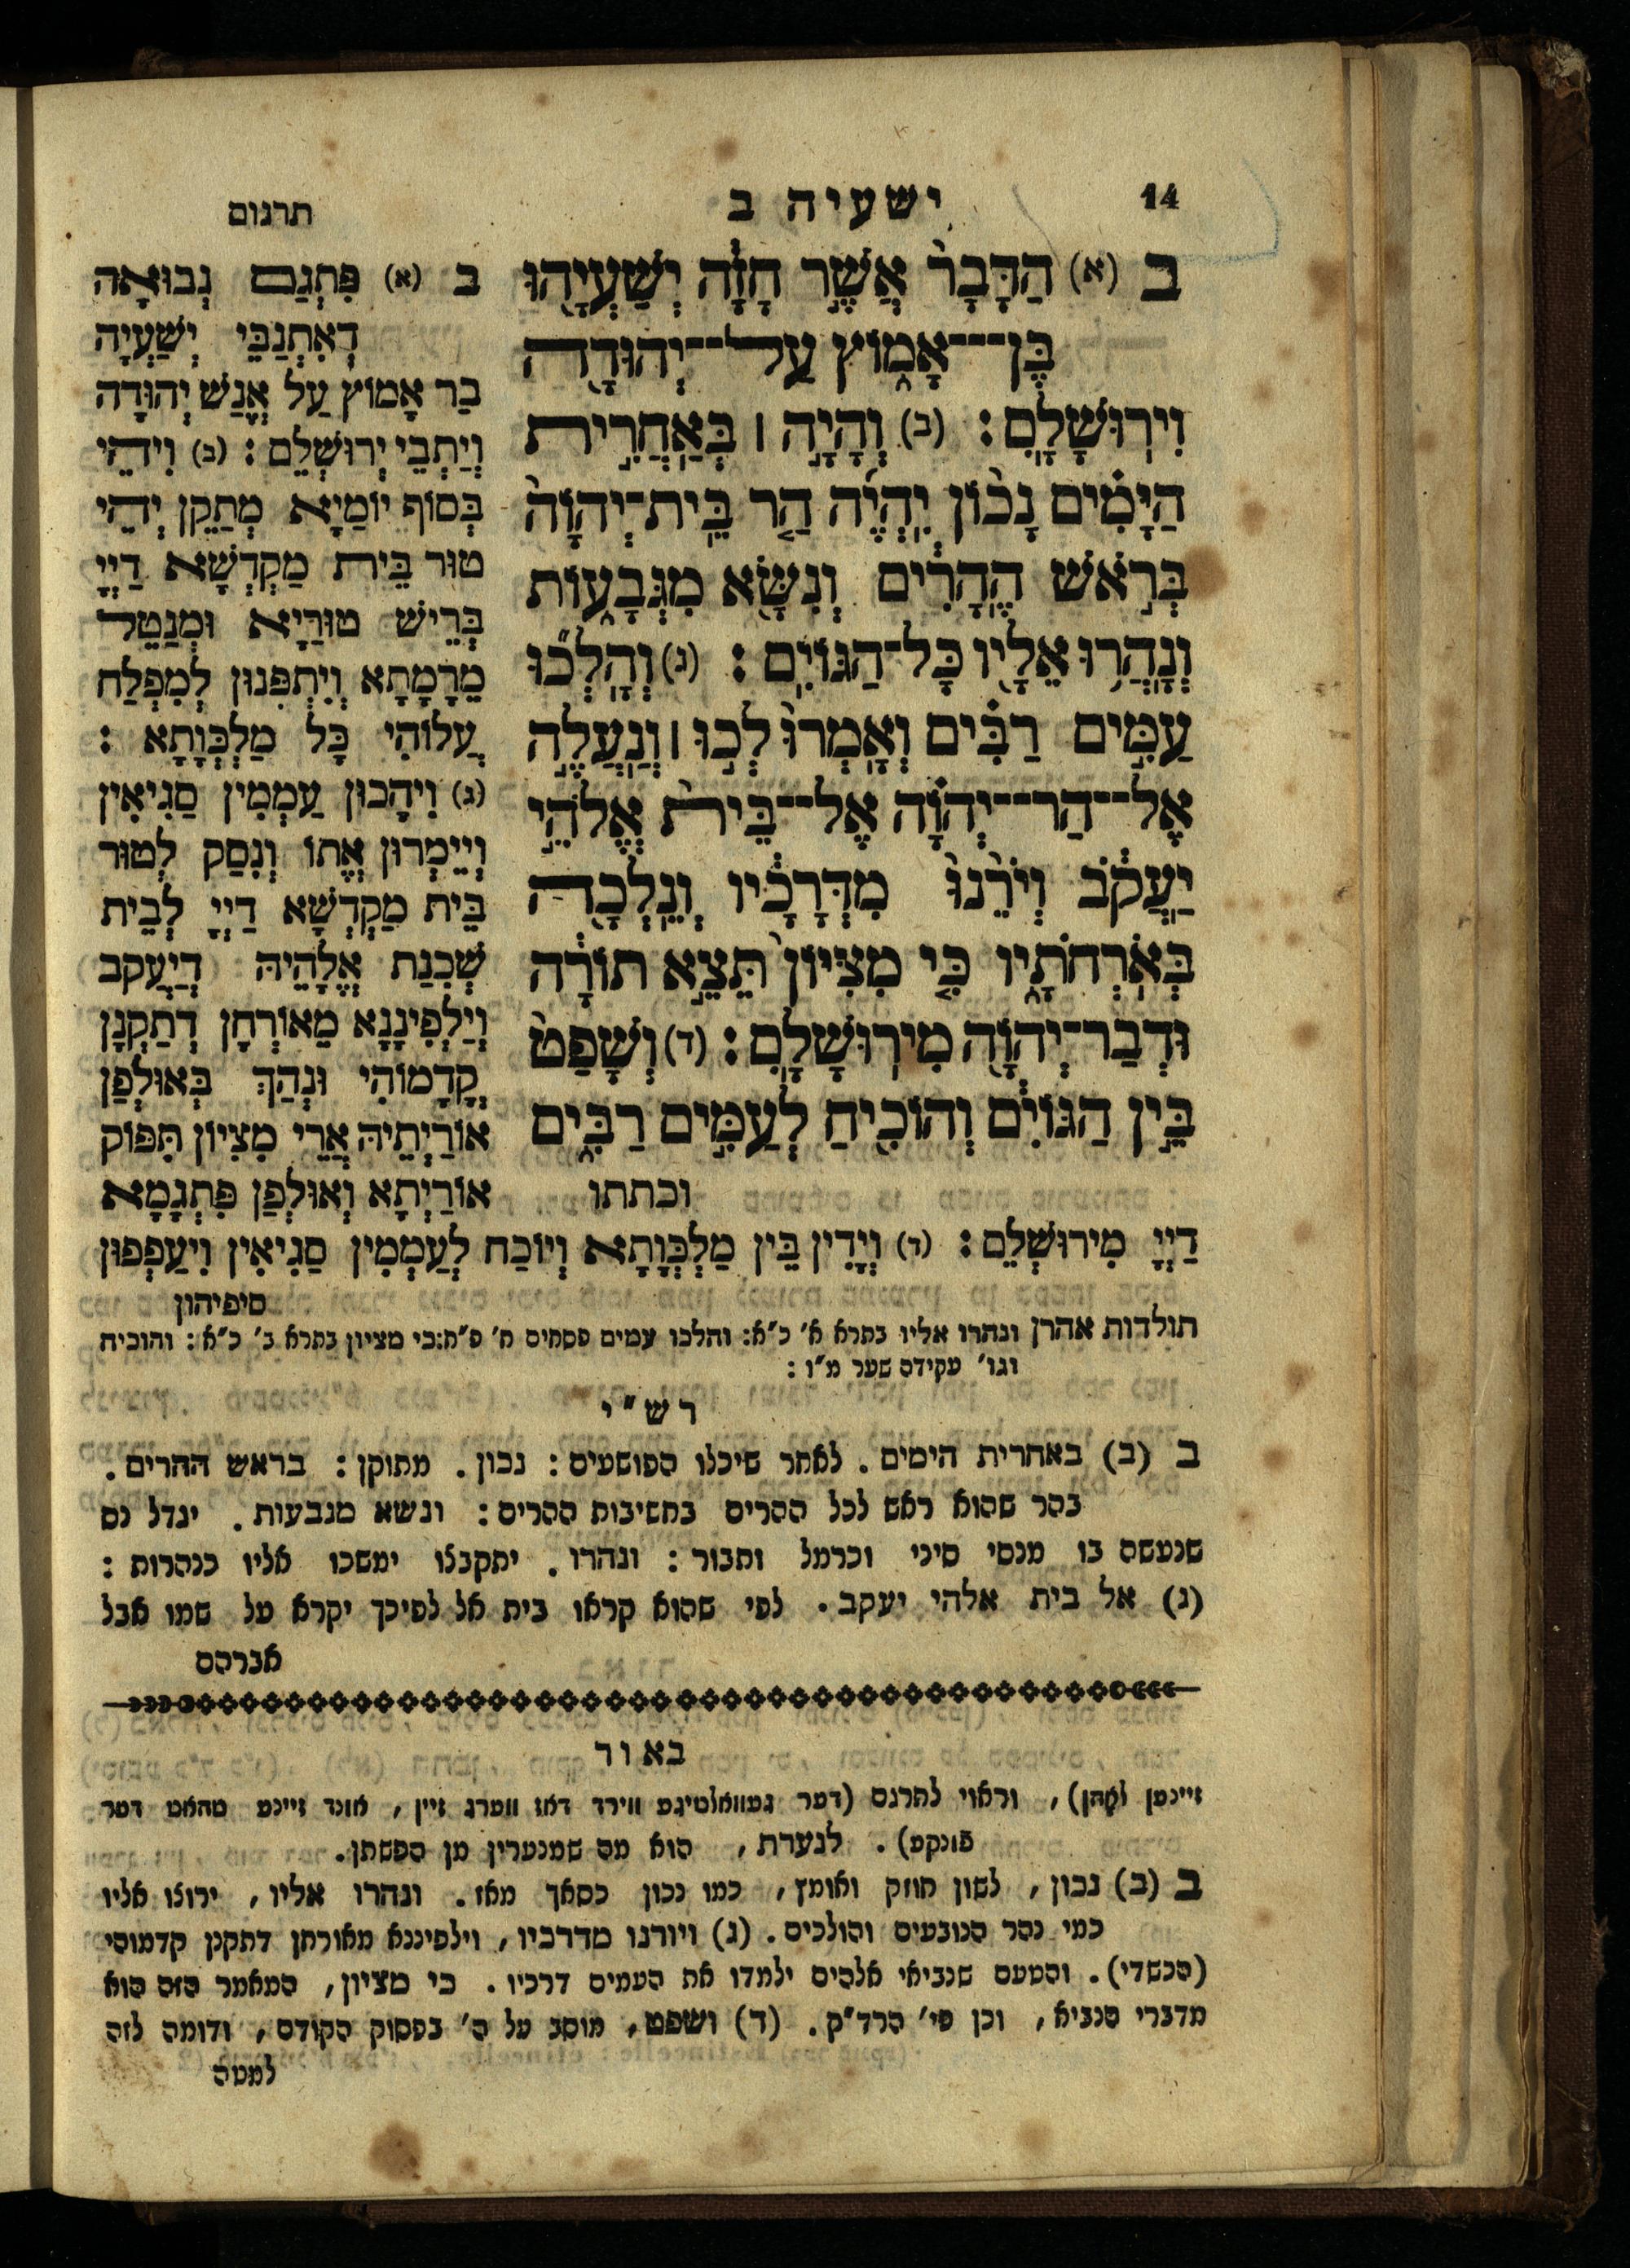 14
ישעיה ב
תרגום
ב (א) הַדָּבָר֙ אֲשֶׁ֣ר חָזָ֔ה יְשַׁעְיָ֖הוּ
בֶּן־־־אָמ֑וֹץ עַל־־יְהוּדָ֖ה
וִירֽוּשָׁלָֽםִ׃ (ב) וְהָיָ֣ה ׀ בְּאַחֲרִ֣ית
הַיָּמִ֗ים נָכ֨וֹן יִֽהְיֶ֜ה הַ֤ר בֵּֽית־יְהוָֹה֙
בְּרֹ֣אשׁ הֶֽהָרִ֔ים וְנִשָּׂ֖א מִגְּבָע֑וֹת
וְנָֽהֲר֥וּ אֵלָ֖יו כָּל־הַגּוֹיִֽם׃ (ג) וְֽהָלְכ֞וּ
עַמִּ֣ים רַבִּ֗ים וְאָֽמְרוּ֙ לְכ֣וּ ׀ וְנַֽעֲלֶ֣ה
אֶל־־הַר־־יְהוָֹ֗ה אֶל־־בֵּית֙ אֱלֹהֵ֣י
יַֽעֲקֹ֔ב וְיֹרֵ֨נוּ֙ מִדְּרָכָ֔יו וְנֵֽלְכָ֖ה
בְּאֹֽרְחֹתָ֑יו כִּ֤י מִצִּיּוֹן֙ תֵּצֵ֣א תוֹרָ֔ה
וּדְבַר־יְהוָֹ֖ה מִירֽוּשָׁלָֽםִ׃ (ד) וְשָׁפַט֙
בֵּ֣ין הַגּוֹיִ֔ם וְהוֹכִ֖יחַ לְעַמִּ֣ים רַבִּ֑ים
וכתתו
ב (א) פִּתְגַם נְבוּאָה
דְאִתְנַבֵּי יְשַׁעְיָה
בַר אָמוֹץ עַל אֱנַשׁ יְהוּדָה
וְיַתְבֵי יְרוּשְׁלֵם׃ (ב) וִיהֵי
בְּסוֹף יוֹמַיָא מְתַקֵן יְהֵי
טוּר בֵּית מַקְדְשָׁא דַיְיָ
בְּרֵישׁ טוּרַיָא וּמְנַטֵל
מֵרָמָתָא וְיִתְפְּנוּן לְמִפְלַח
עֲלוֹהִי כָּל מַלְכְּוָתָא׃
(ג) וִיהָכוּן עַמְמִין סַגִיאִין
וְיֵימְרוּן אֱתוֹ וְנִסַק לְטוּר
בֵּית מַקְדְשָׁא דַיְיָ לְבֵית
שְׁכִנַת אֱלָהֵיהּ דְיַעֲקב
וְיַלְפִינָנָא מֵאוֹרְחָן דְתַקְנָן
קֳדָמוֹהִי וּנְהַךְ בְּאוּלְפַן
אוֹרַיְתֵיהּ אֲרֵי מִצִיוֹן תִּפּוֹק
אוֹרַיְתָא וְאוּלְפַן פִּתְגָמָא
דַיְיָ מִירוּשְׁלֵם׃ (ד) וְיָדִין בֵּין מַלְכְּוָתָא וְיוֹכַח לְעַמְמִין סַגִיאִין וִיעַפְפוּן
סיפיהון
תולדות אהרן ונהרו אליו בתרא א׳ כ״א: והלכו עמים פסחים ח׳ פ״ח:כי מציון בתרא ב׳ כ״א: והוכיח
וגו׳ עקידה שער מ״ו:
רש״י
ב (ב) באחרית הימים. לאחר שיכלו הפושעים: נכון. מתוקן: בראש ההרים.
בהר שהוא ראש לכל ההרים בחשיבות ההרים: ונשא מגבעות. יגדל נס
שנעשה בו מנסי סיני וכרמל ותבור: ונהרו. יתקבצו ימשכו אליו כנהרות:
(ג) אל בית אלהי יעקב. לפי שהוא קראו בית אל לפיכך יקרא על שמו אבל
אברהם
באור
זיינען לאָהן), וראוי לתרגם (דער געוואלטיגע ווירד דאז ווערג זיין, אונד זיינע טהאט דער
פונקע). לנערת, הוא מה שמנערין מן הפשתן.
ב (ב) נכון, לשון חוזק ואומץ, כמו נכון כסאך מאז. ונהרו אליו, ירוצו אליו
כמי נהר הנובעים והולכים. (ג) ויורנו מדרכיו, וילפיננא מאורחן דתקנן קדמוהי
(הכשדי). והטעם שנביאי אלהים ילמדו את העמים דרכיו. כי מציון, המאמר הזה הוא
מדברי הנביא, וכן פי׳ הרד״ק. (ד) ושפט, מוסב על ה׳ בפסוק הקודם, ודומה לזה
למטה